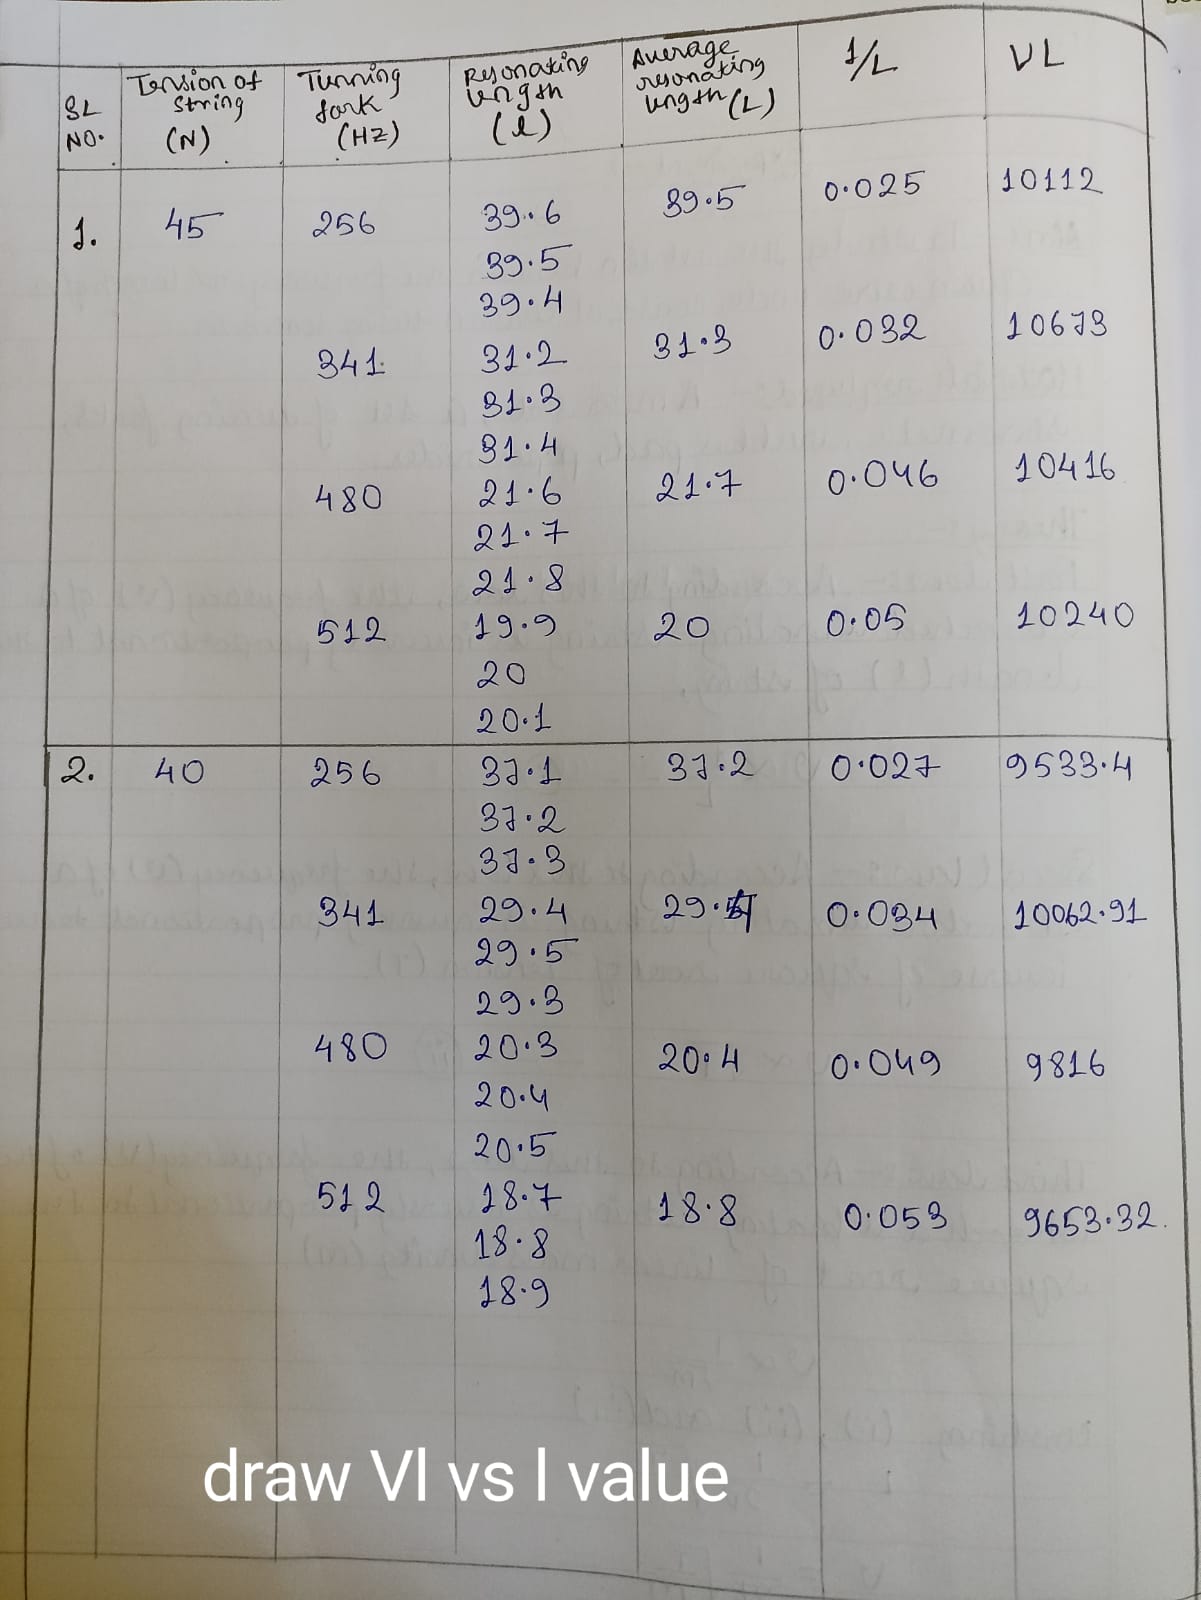 SL NO. Tension of string (N) Tunning fork (HZ) Resonating length (l) Average resonating length (L) 1/L VL
1. 45 256 39.6 39.5 0.025 10112
39.5
39.4
341 31.2 31.3 0.032 10673
31.3
31.4
480 21.6 21.7 0.046 10416
21.7
21.8
512 19.9 20 0.05 10240
20
20.1
2. 40 256 37.1 37.2 0.027 9533.4
37.2
37.3
341 29.4 29. 0.034 10062.91
29.5
29.3
480 20.3 20.4 0.049 9816
20.4
20.5
512 18.7 18.8 0.053 9653.32.
18.8
18.9
draw Vl vs l value